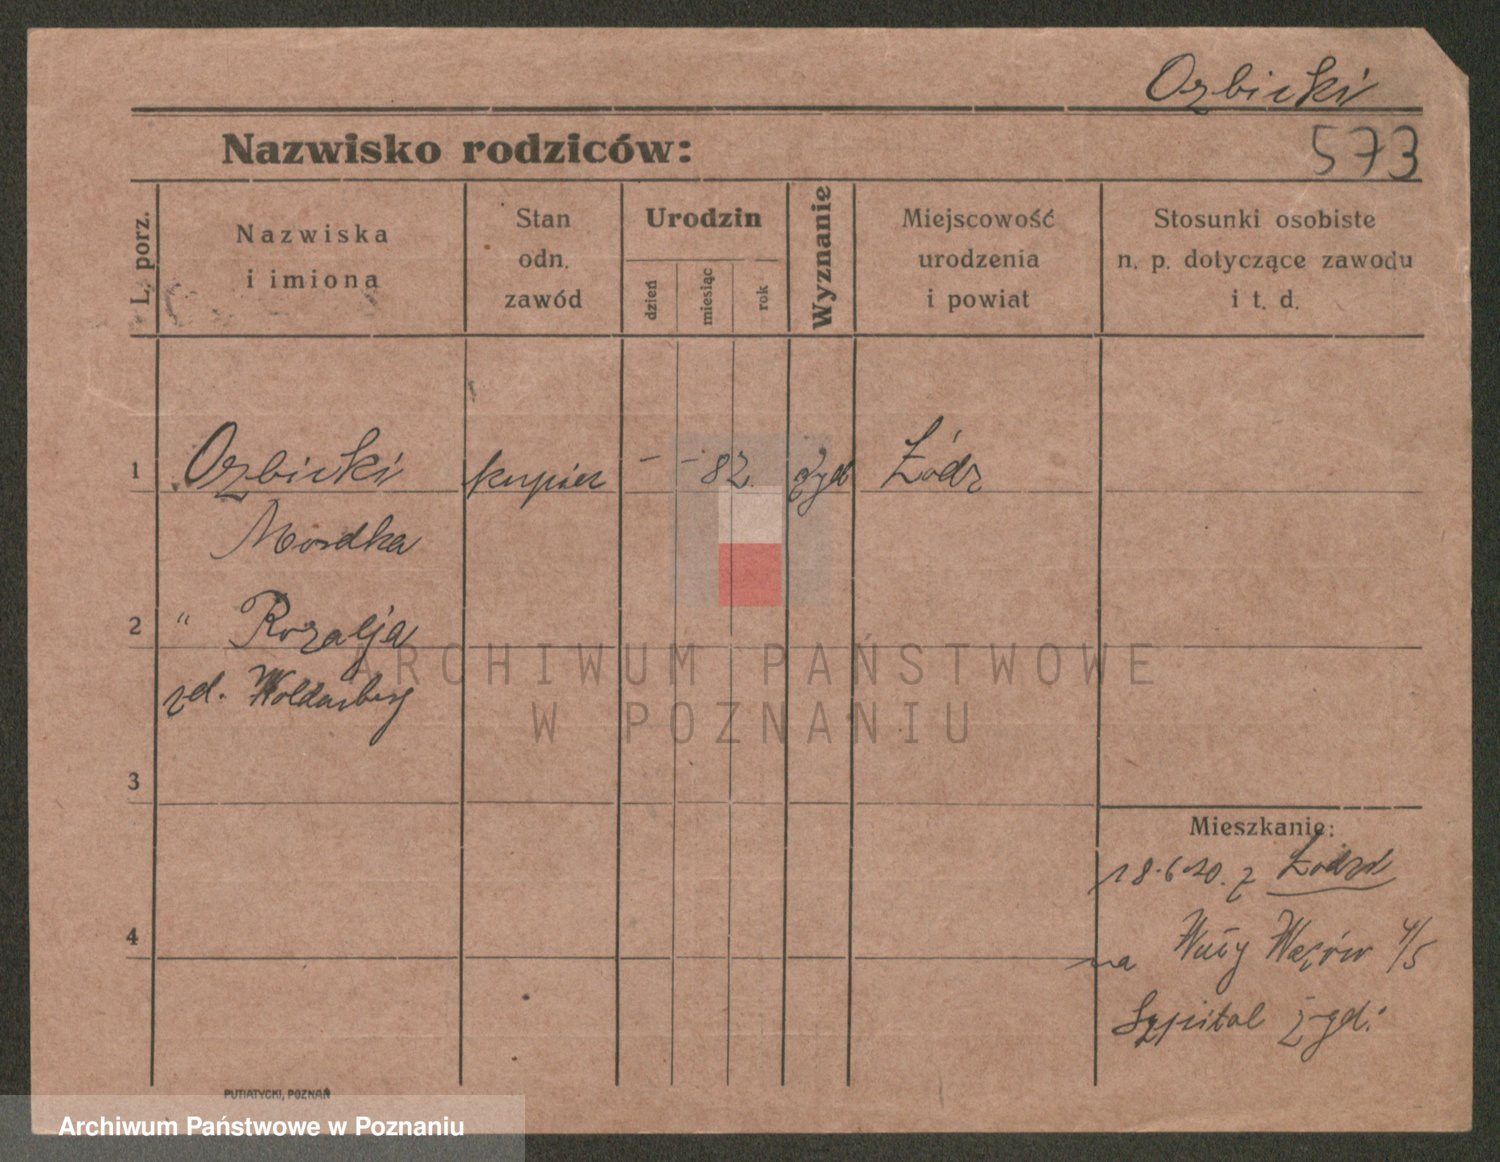 Ozbicki
573
Nazwisko rodziców:
L. porz.
Nazwiska
i imiona
Stan
odn.
zawód
Urodzin
dzień
miesiąc
rok
Wyznanie
Miejscowość
urodzenia
i powiat
Stosunki osobiste
n. p. dotyczące zawodu
i t. d.
1 Ozbicki kupiec – – 82. żyd Łódz
Mordka
2 " Rozalja
zd.
3
Mieszkanie:
18.6.20. z
4
na 4/5
Szpital żyd.
PUTIATYCKI, POZNAŃ
ARCHIWUM PAŃSTWOWE
W POZNANIU
Archiwum Państwowe w Poznaniu